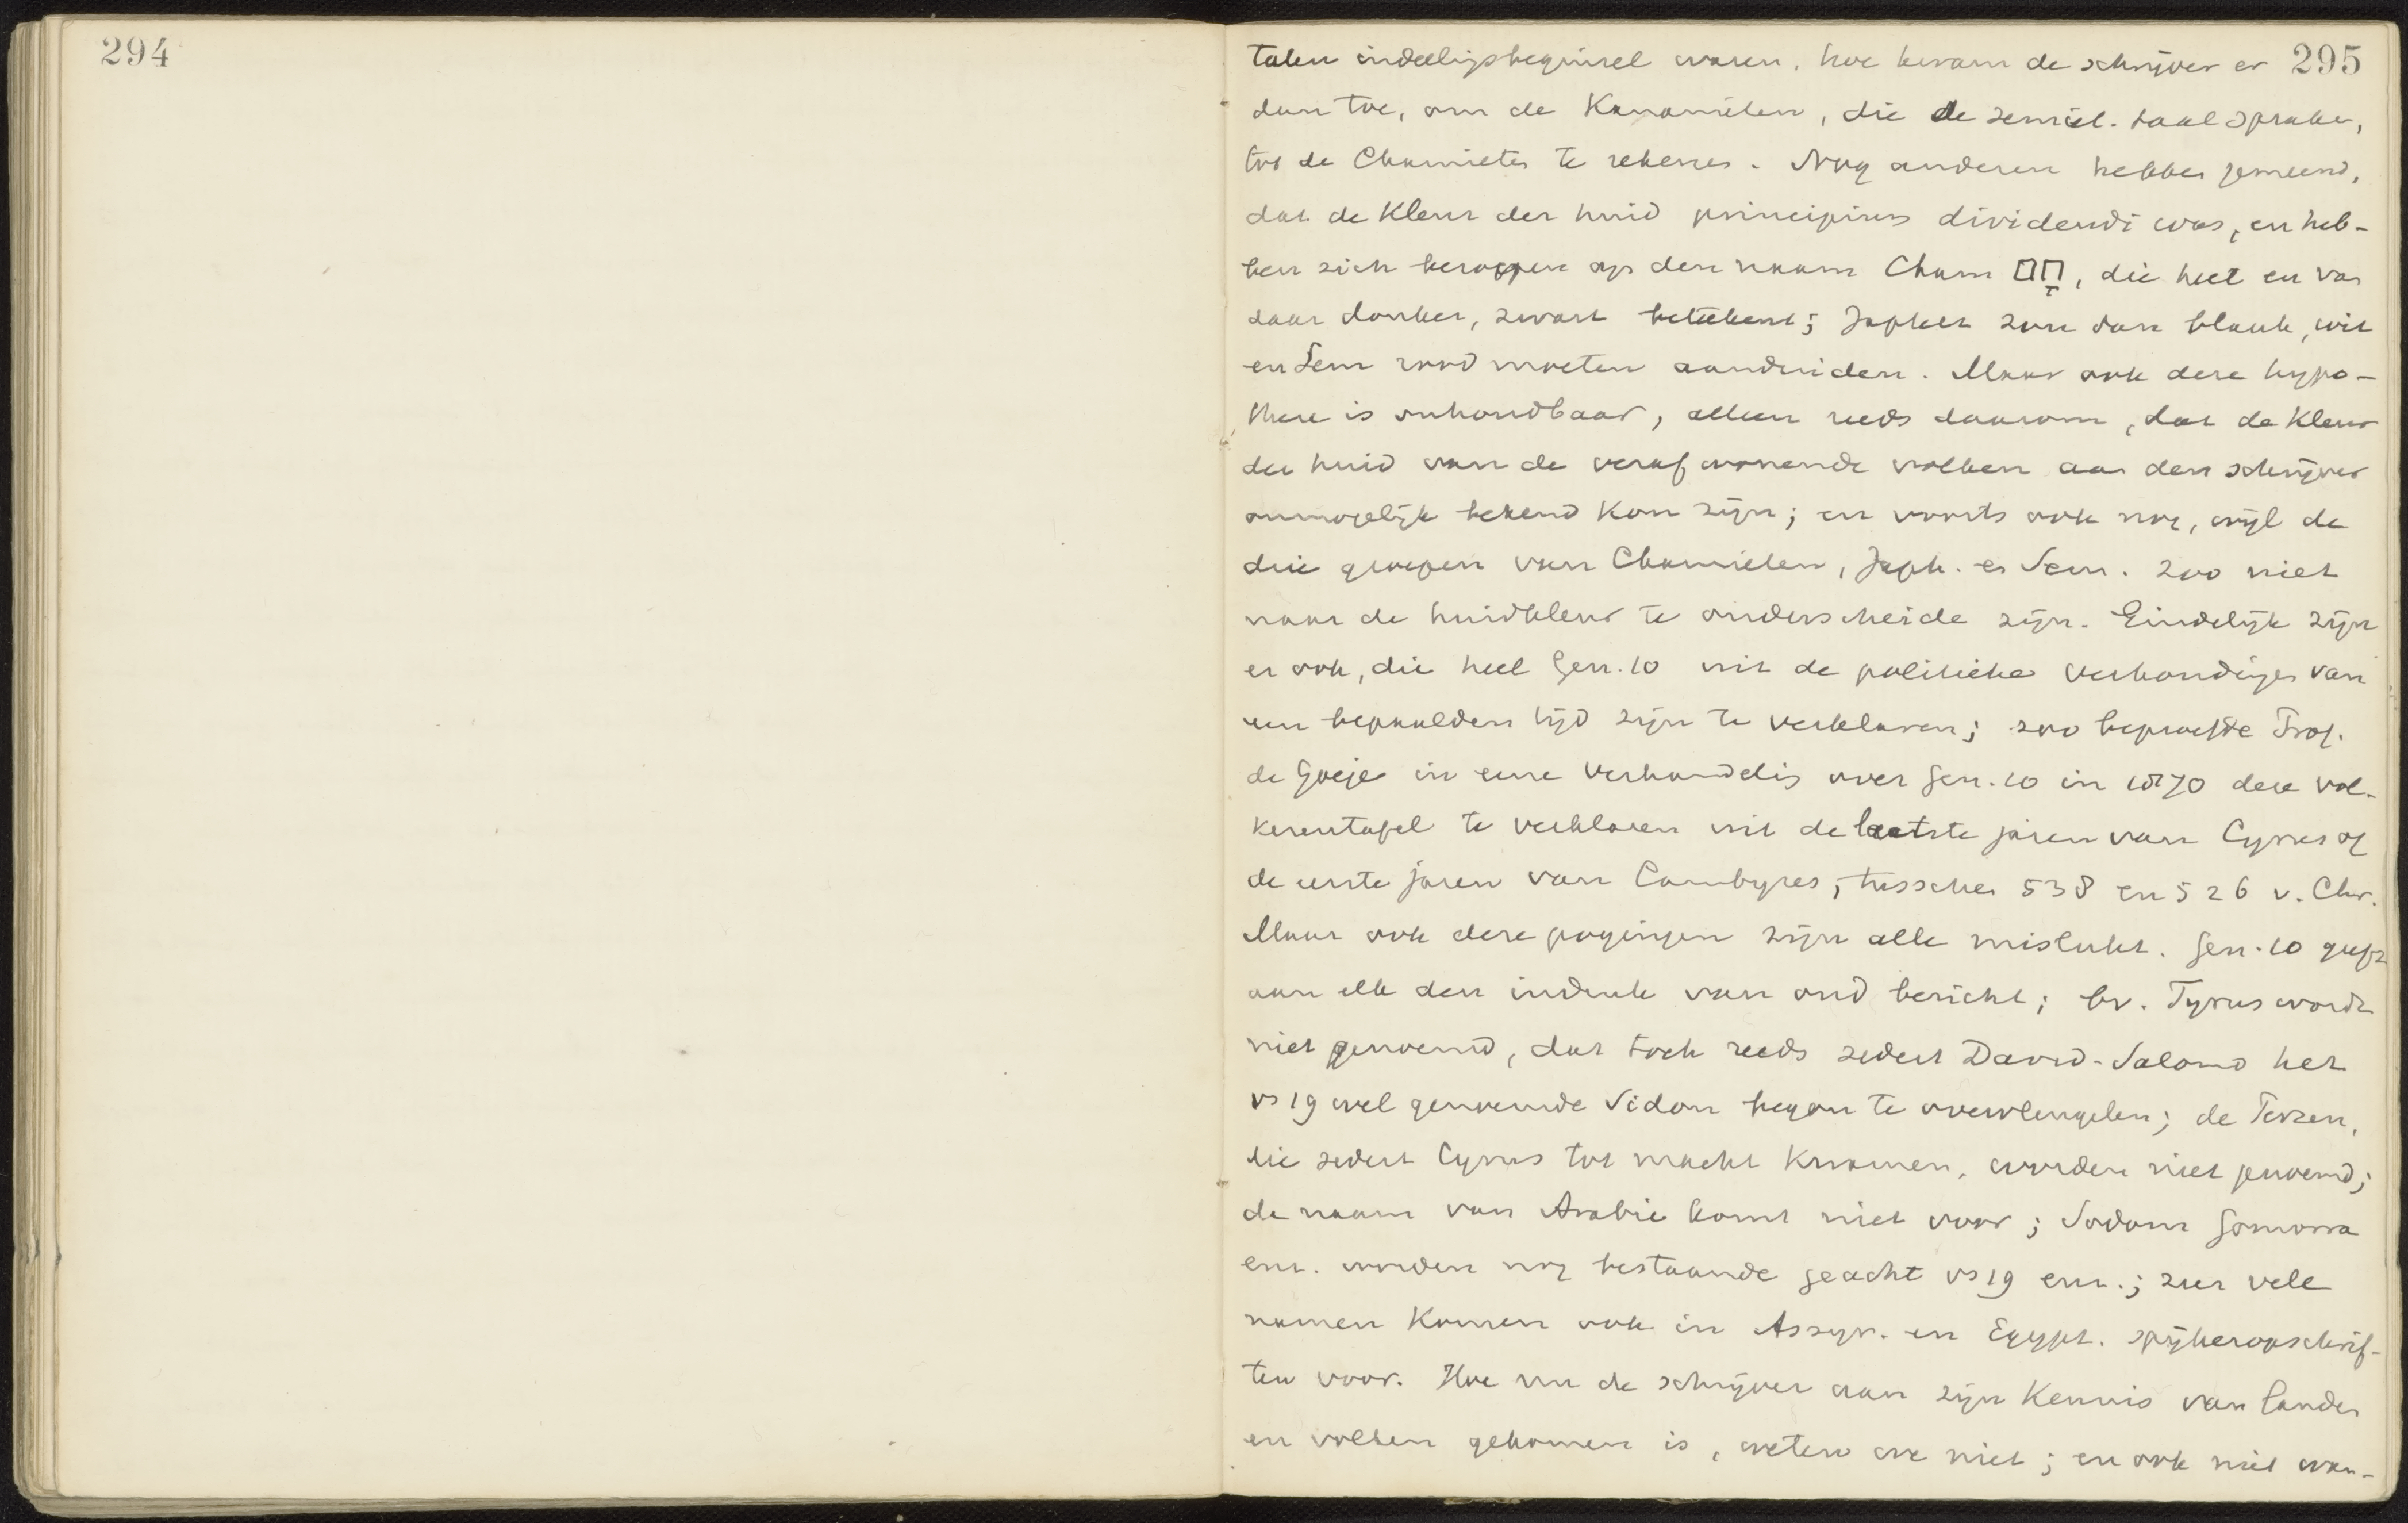 294
295
talen indeelingsbeginsel waren, hoe kwam de schrijver er
dan toe, om de Kanaanieten, die de semiet. taal spraken,
tot de Chamieten te rekenen. Nog anderen hebben gemeend,
dat de kleur der huid principium dividendi was, en heb-
ben zich beroepen op den naam Cham חָם, die heet en van
daar donker, zwart beteekent; Japhet zou dan blank, wit
en Sem rood moeten aanduiden. Maar ook deze hypo-
these is onhoudbaar, alleen reeds daarom, dat de kleur
der huid van de verafwonende volken aan den schrijver
onmogelijk bekend kon zijn; en voorts ook nog, wijl de
drie groepen van Chamieten, Japh. en Sem. zoo niet
naar de huidkleur te onderscheiden zijn. Eindelijk zijn
er ook, die heel Gen. 10 uit de politieke verhoudingen van
een bepaalden tijd zijn te verklaren; zoo beproefde Prof.
de Goeje in eene verhandeling over Gen. 10 in 1870 deze vol-
kerentafel te verklaren uit de laatste jaren van Cyrus of
de eerste jaren van Cambyses, tusschen 538 en 526 v. Chr.
Maar ook deze pogingen zijn alle mislukt. Gen. 10 geeft
aan elk den indruk van oud bericht; bv. Tyrus wordt
niet genoemd, dat toch reeds sedert David-Salomo het
vs 19 wel genoemde Sidon begon te overvleugelen; de Perzen,
die sedert Cyrus tot macht kwamen, worden niet genoemd;
de naam van Arabie komt niet voor; Sodom Gomorra
enz. worden nog bestaande geacht vs 19 enz.; zeer vele
namen komen ook in Assyr. en Egypt. spijkeropschrif-
ten voor. Hoe nu de schrijver aan zijn kennis van landen
en volken gekomen is, weten we niet; en ook niet wan-